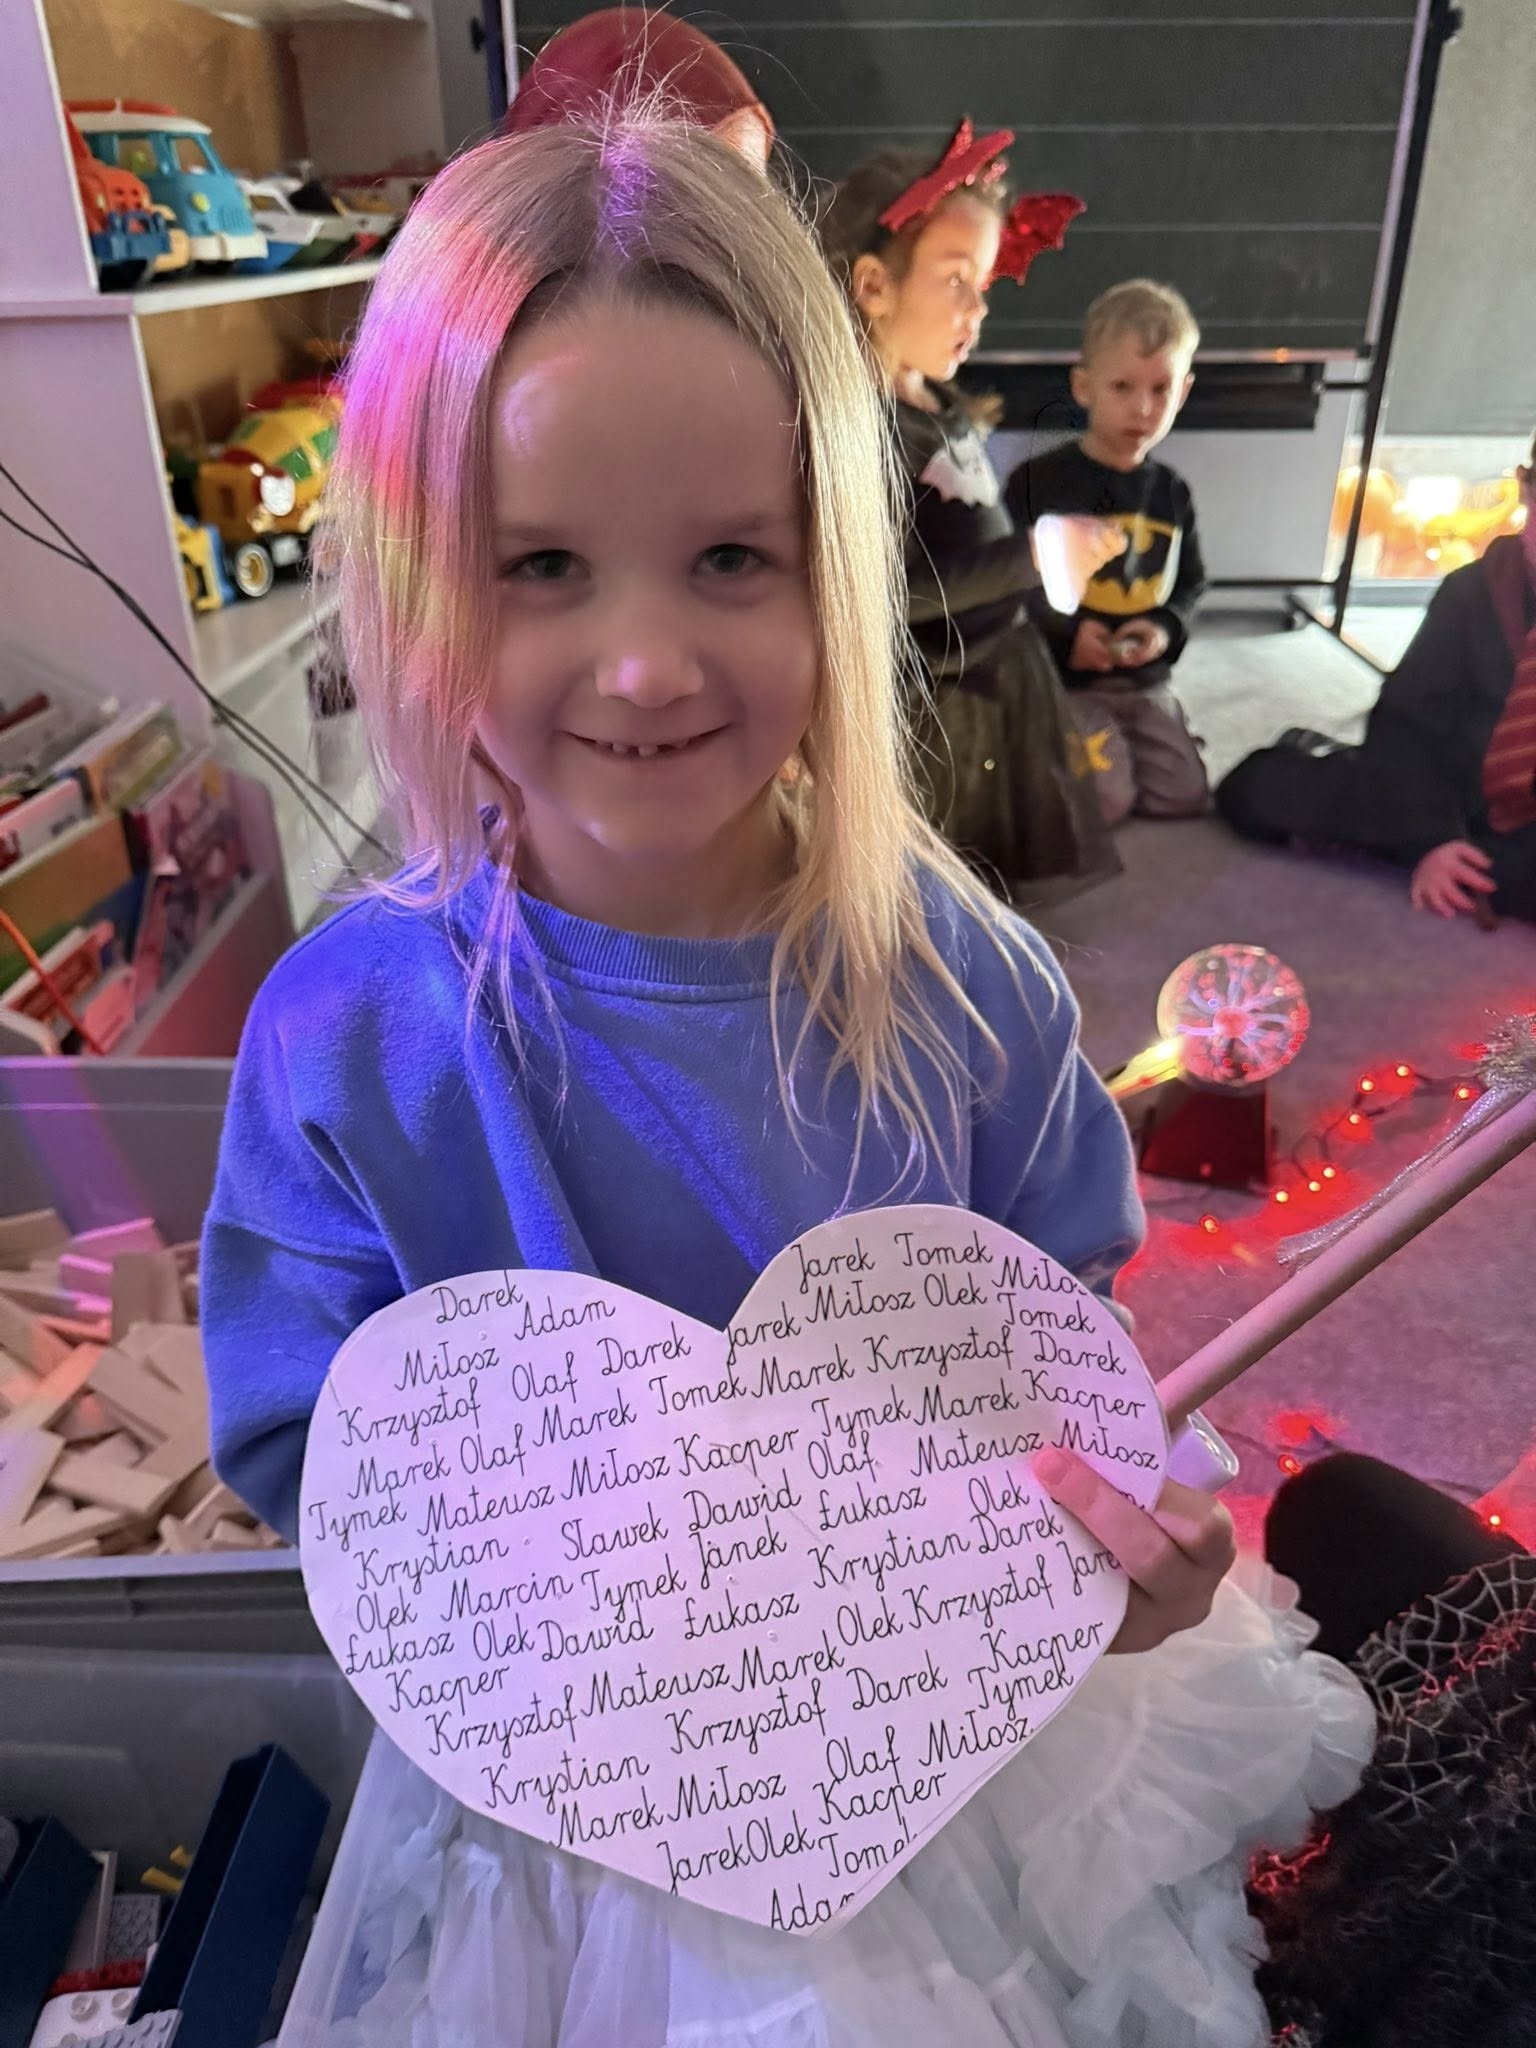 Jarek Tomek
Darek Adam Jarek Miłosz Olek Miło
Miłosz Olaf Darek Marek Krzysztof Tomek
Krzysztof Marek Tomek Tymek Marek Darek
Marek Olaf Miłosz Kacper Olaf Mateusz Kacper
Tymek Mateusz Dawid Łukasz Olek Miłosz
Krystian Sławek Janek Krystian Darek
Olek Marcin Tymek Łukasz Olek Krzysztof Jare
Łukasz Olek Dawid Marek Darek Kacper
Kacper Mateusz Krzysztof Tymek
Krzysztof Olaf Miłosz
Krystian Miłosz Kacper
Marek Olek Tome
Jarek Adam